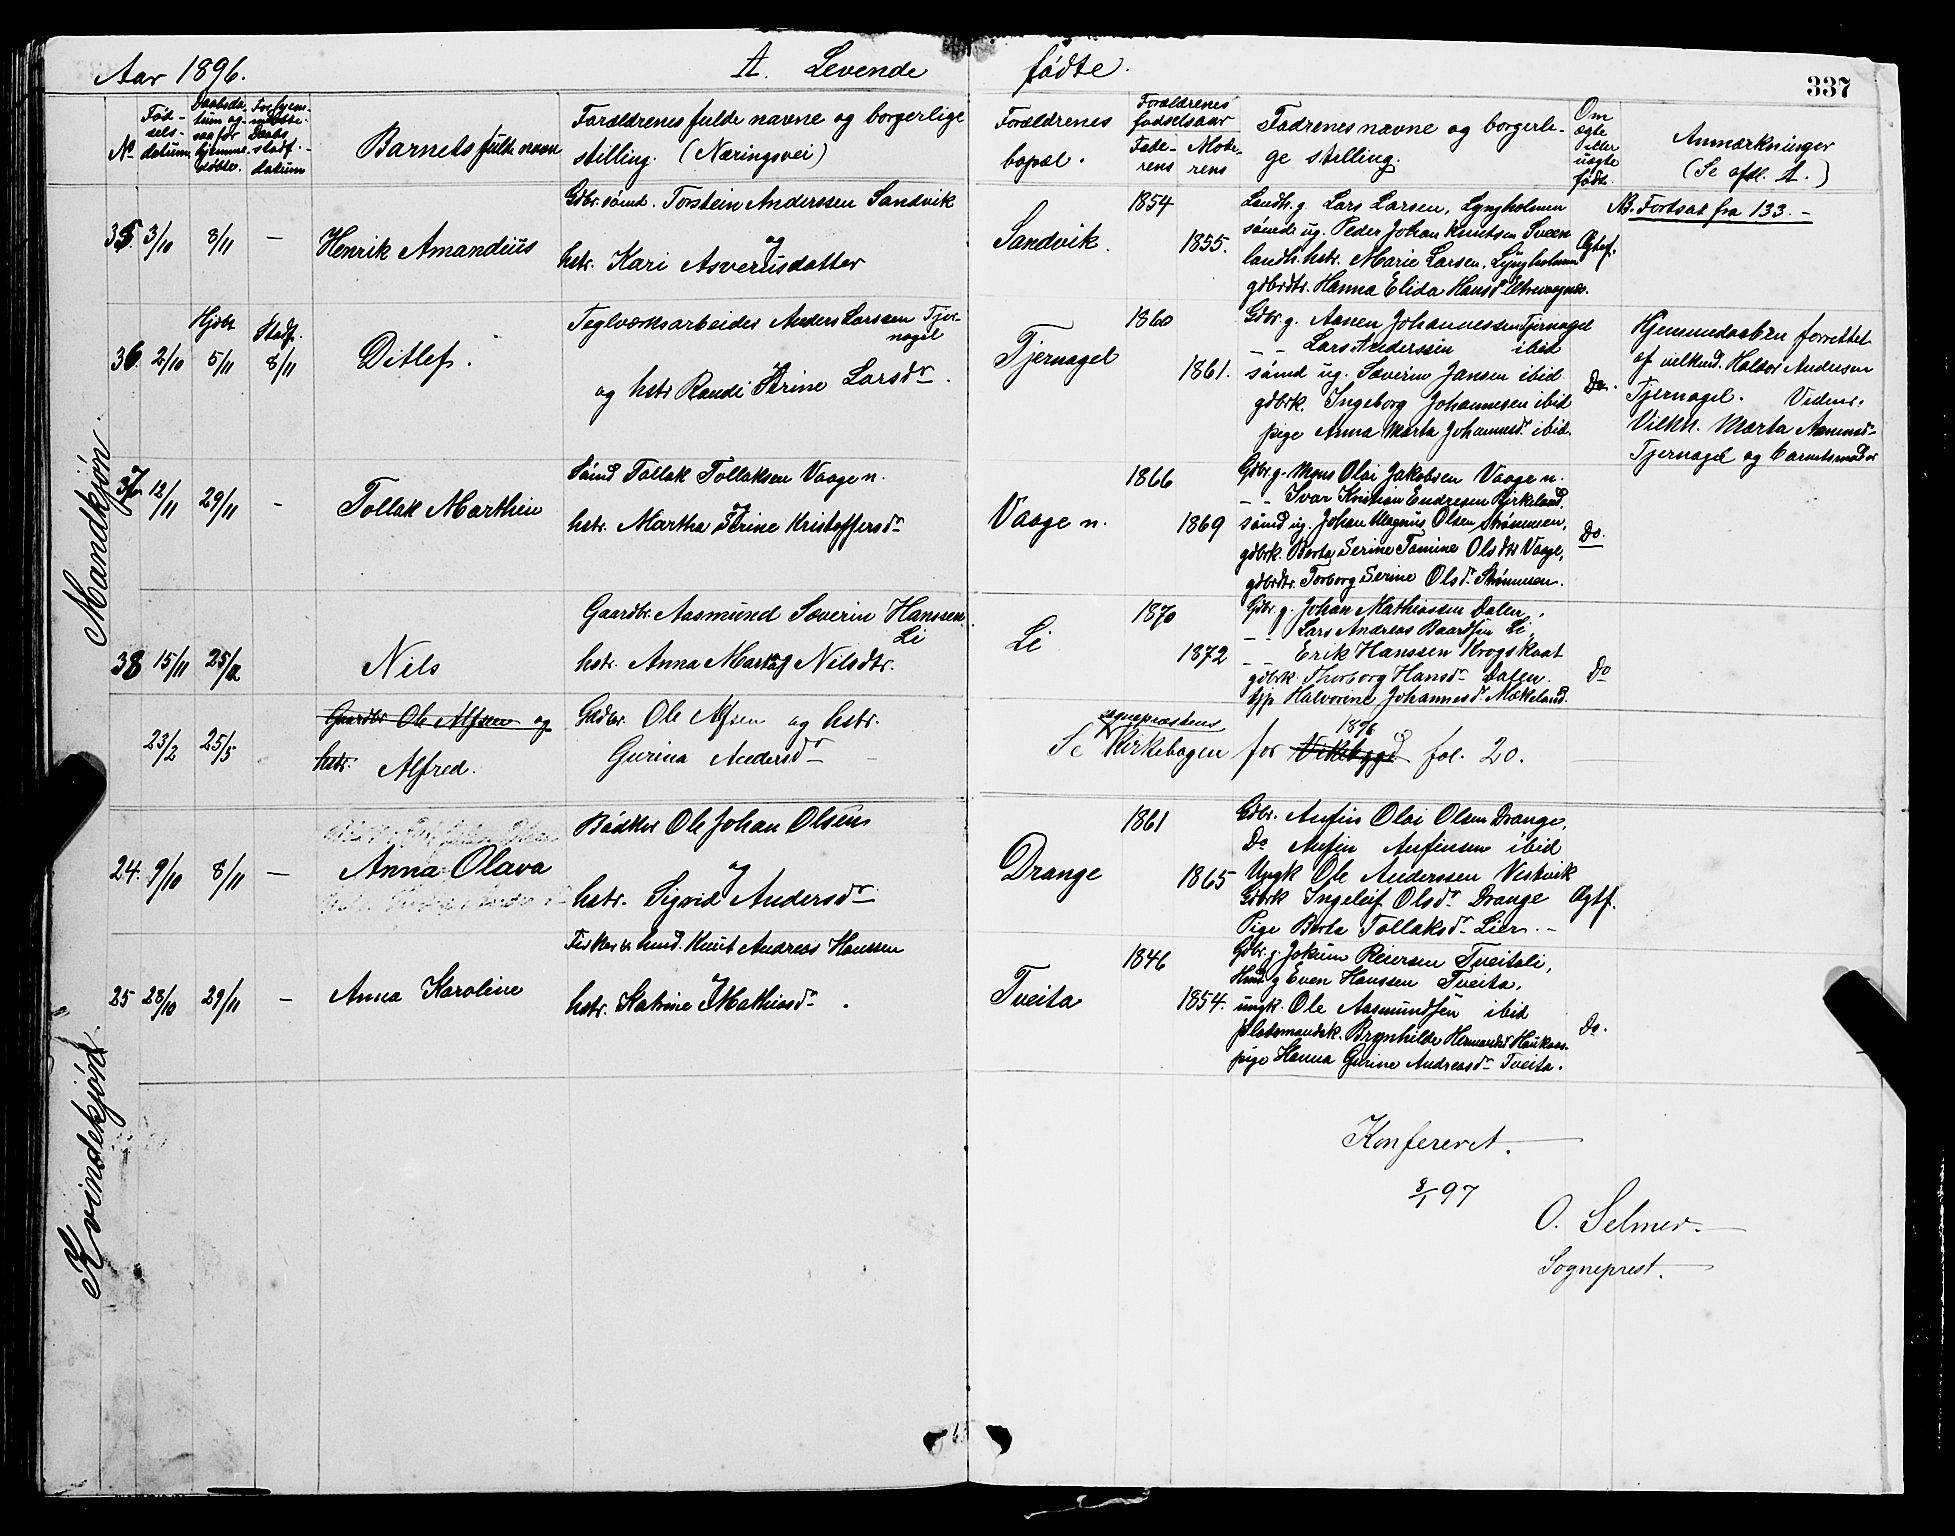 Aar 1896. A. Levende fødte. 337
No Fødselsdatum Daabsdatum og- saa for hjemmedøbte. For hjemmedøbte Daabs stadf. datum Barnets fulde navn Forældrenes fulde navne og borgerlige stilling. (Næringsvei) Forældrenes bopæl. Forældrenes fødselsaar Faderens Moderens Fadrenes navne og borgerlige stilling. Om ægte eller uægte født. Anmærkninger (Se afdl. A.)
Mandkjøn.
35. 3/10 8/11 — Henrik Amandius
Gdbr. sømd. Torstein Anderssen Sandvik
og
hstr. Kari Asverusdatter
Sandvik. 1854 1855.
Landh. g. Lars Larsen, Lyngholmen
sømd. ug. Peder Johan Knutsen Sveen
landh. hstr. Marie Larsen, Lyngholmen
gdbrdtr. Hanna Elida Hansdr
Ægtef.
NB. Fortsat fra 133. —
36. 2/10 Hjdbt 5/11 Stadf. 8/11 Ditlef.
Teglværksarbeider Anders Larssen Tjernagel
og hstr Randi Strine Larsdr.
Tjernagel 1860 1861.
Gdbr. g. Aanen Johannessen Tjernagel
— — Lars Anderssen ibid
sømd ug. Sæverin Jansen ibid
gdbrk. Ingeborg Johannesen ibid
pige Anna Marta Johannesd. ibid.
Do.
Hjemmedaaben forrettet
af vilkmd. Haldor Andersen
Tjernagel. Vidner:
Vilkk. Marta Aamunds-
Tjernagel og barnets moder
37 12/11 29/11 - Tollak Marthin
Sømd Tollak Tollaksen Vaage n.
hstr. Martha Strine Kristoffersdr
Vaage n. 1866 1869
Gdbr. g. Mons Olai Jakobsen Vaage n.
— — Ivar Kristian Endresen Birkeland,
sømd ug. Johan Magnus Olsen Strømmen,
gdbrk. Berta Serine Tomine Olsdtr Vaage,
gdbrdtr. Torborg Serine Olsdr Strømmen.
Do.
38 15/11 25/12 Nils
Gaardbr. Aasmund Sæverin Hanssen
Li
hstr. Anna Marta Nilsdtr.
Li 1870 1872
Gdbr. g. Johan Mathiassen Dalen,
— — Lars Andreas Baardsen Li,
— — Erik Hanssen Krogskaat
gdbrk. Thorborg Hansdr Dalen.
tjp Halvorine Johannesdr Mækeland.
Do
23/2 25/5 Gaardbr Ole Alfsen og
hstr. Alfred.
Gdbr. Ole Alfsen og hstr.
Gurina Andersdr
Se sogneprestens Kirkebogen for Vikebygd 1896 fol. 20.
Kvindekjøn.
24. 9/10 8/11 — Anna Olava
Bødker Ole Johan Olsen
og
hstr. Sigrid Andersdr
Drange 1861 1865
Gdbr. Anfin Olai Olsen Drange,
Do Anfin Anfinsen ibid
Ungk Ole Anderssen Vestvik
Gdbrk Ingeleif Olsdr Drange
Pige Berta Tollaksdr Lier. —
Ægtf.
25 28/10 29/11 — Anna Karoline
Fisker & husmd. Knut Andreas Hanssen
og
hstr. Katrine Mathiasdr.
Tveita 1846 1854.
Gdbr. g. Jokum Reiersen Tveitali,
Husmd g Even Hanssen Tveita,
ungk. Ole Aasmundsen ibid
pladsmandsk. Brynhilde Hermandsdr Haukaas.
pige Hanna Gurine Andreasdr Tveita.
Do.
Konfereret.
8/1 97
O. Selmer.
Sogneprest.